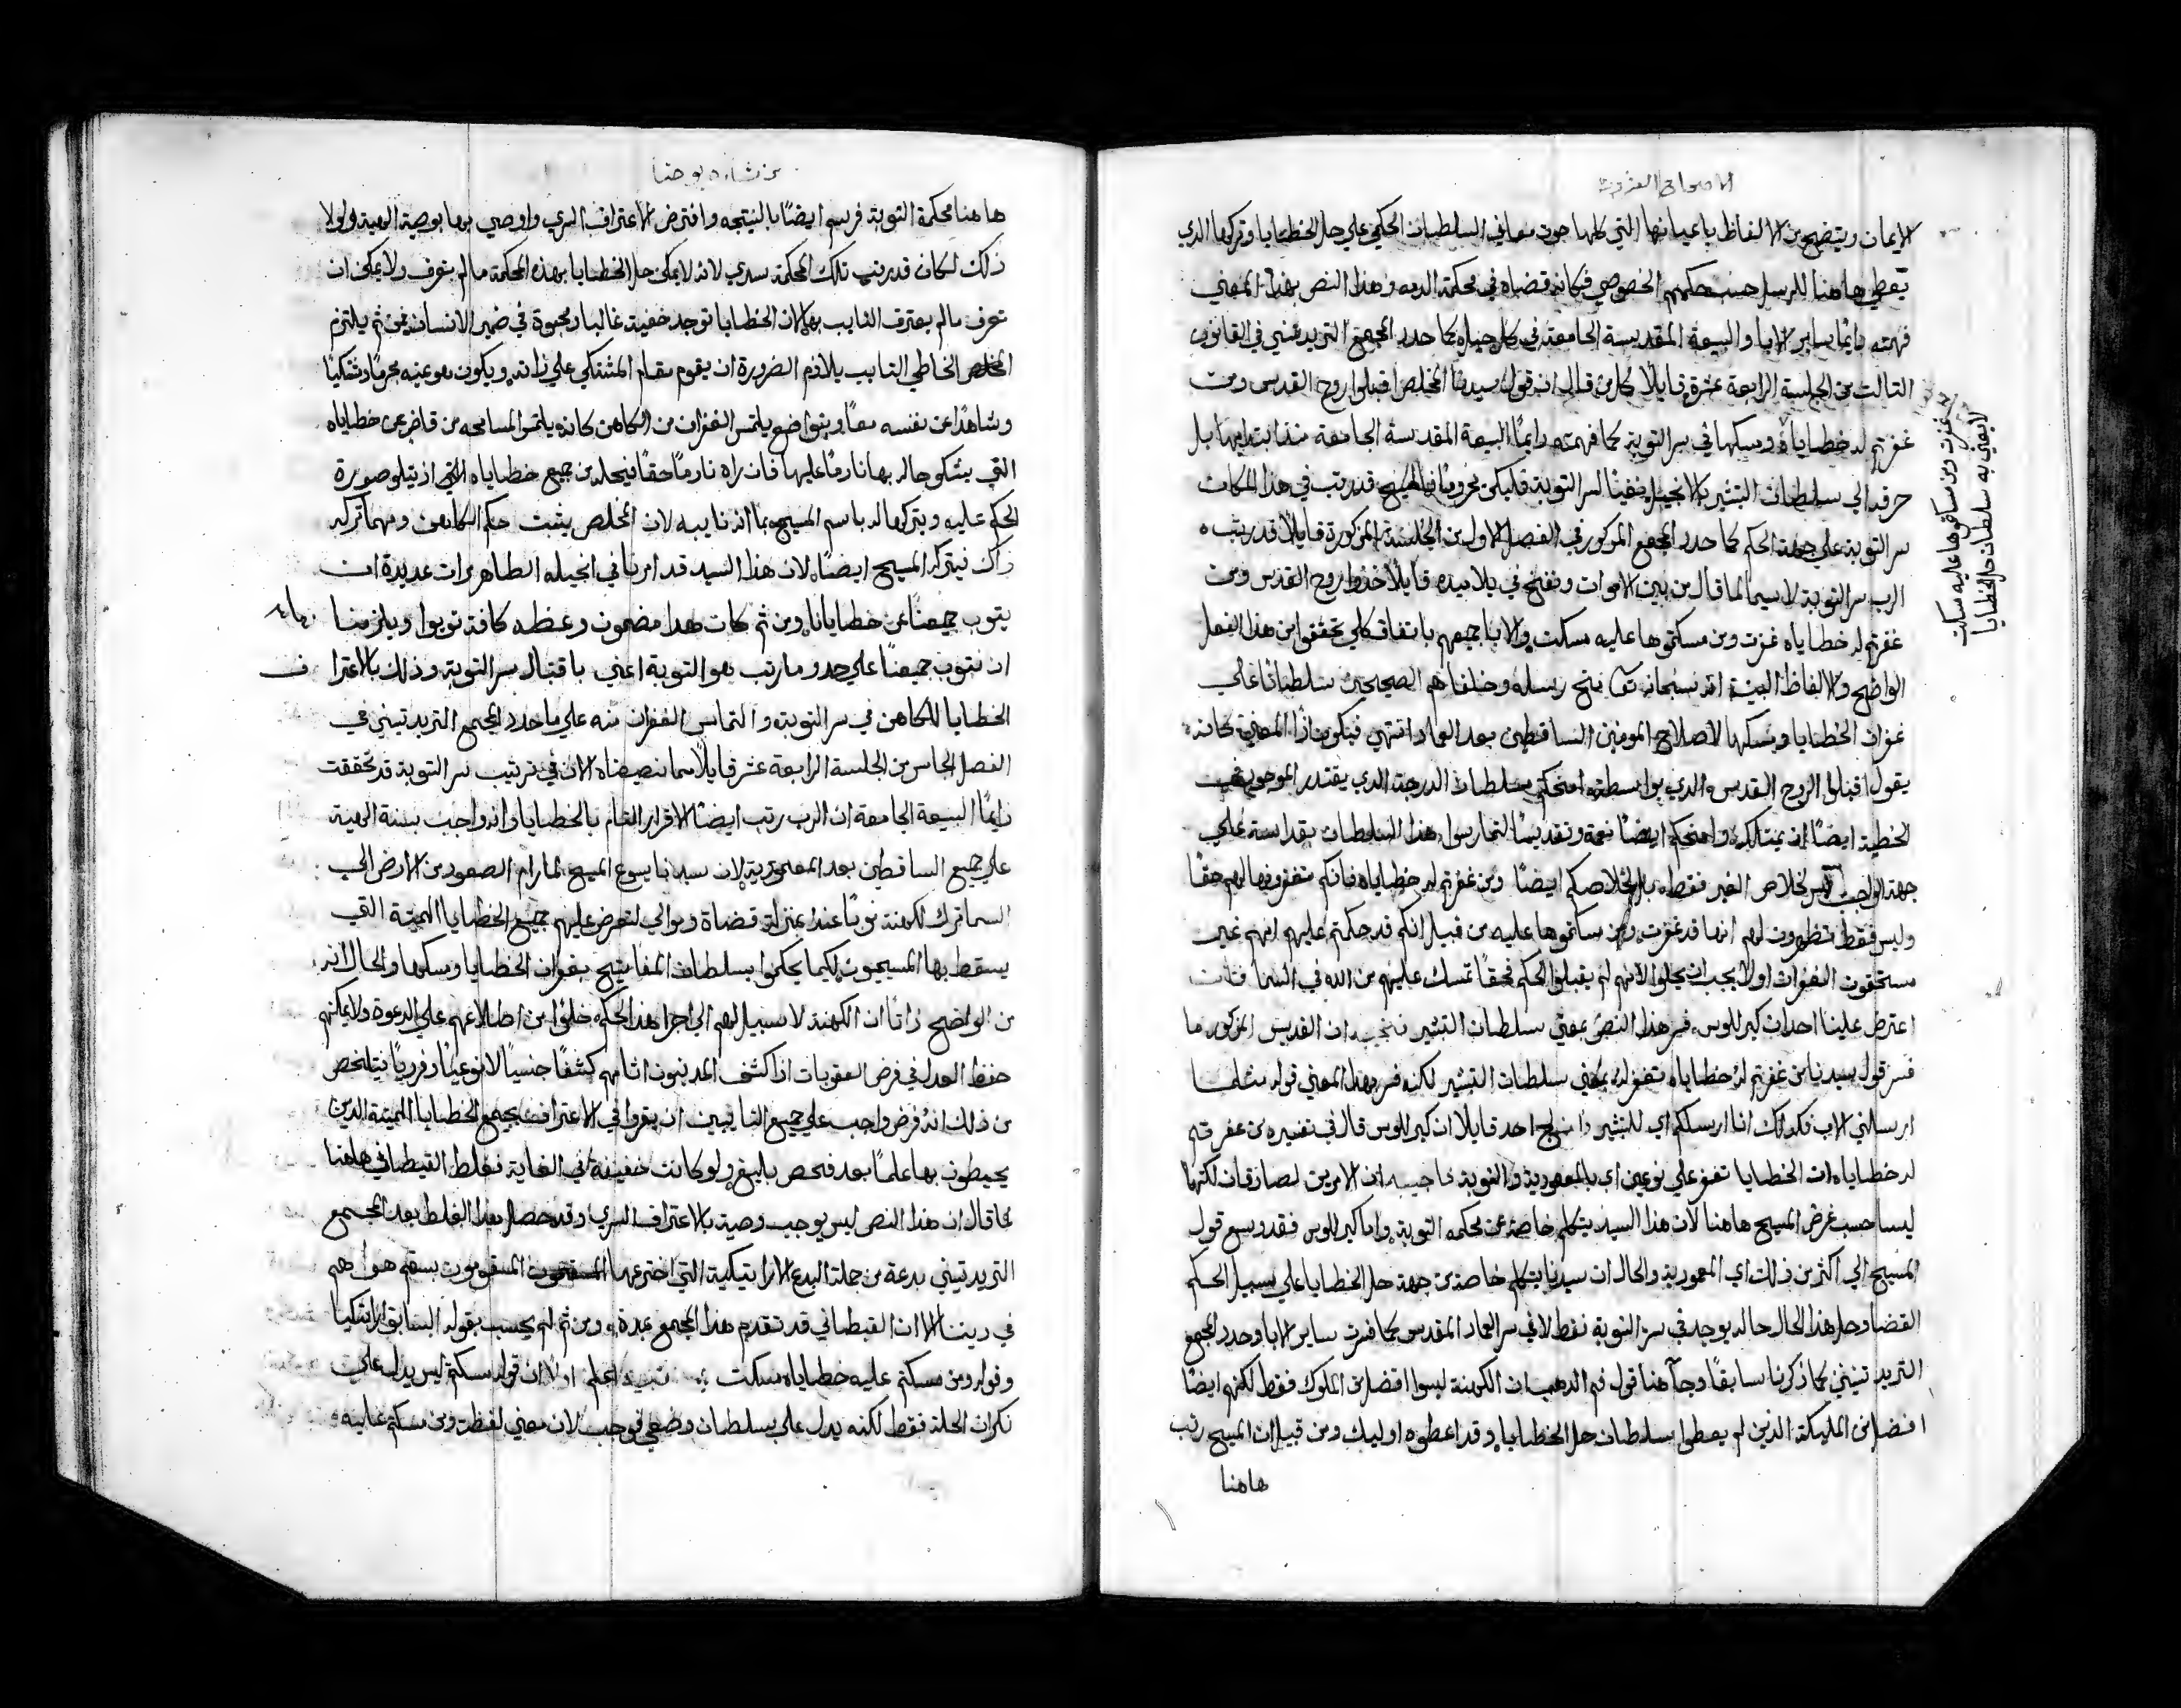 الاصحاح العشرون
الايمان ويتضح من الالفاظ باعيانها التي كلها حوت معاني السلطان الحكمي علي حل الخطايا وتركها الذي
يعطي هاهنا للرسل حسب حكمهم الخصوصي فكانه قضاه في محكمة الدمه وهذا النص بهذا المعني
فهمته دايمًا ساير الابا والبيعة المقدسة الجامعة في كل جيل كما حدد المجمع التريدنتيني في القانون
التالت من الجلسة الرابعة عشرة قايلًا كل من قال ان قول سيدنا المخلص اقبلوا روح القدس ومن
غفرتم له خطاياه ومسكها في سر التوبة كما فهمته دايمًا البيعة المقدسة الجامعة منذ ابتدايها بل
حرفه الي سلطان التبشير بالانجيل نفيًا لسر التوبة فليكن محرومًا فالمسيح قد رتب في هذا المكان
سر التوبة علي جهة الحكم كما حدد المجمع المذكور في الفصل الاول من الجلسة المذكورة قايلًا قد رتب
الرب سر التوبة لاسيما لما قام من بين الاموات ونفخ في تلاميذه قايلًا خذوا روح القدس ومن
غفرتم له خطاياه غفرت ومن مسكتموها عليه مسكت والابا جميعهم باتفاق كلي تحققوا من هذا الفعل
الواضح والالفاظ البينة انه سبحانه تعالى منح رسله وخلفاهم الصحيحين سلطانًا علي
غفران الخطايا ومسكها لاصلاح المومنين الساقطين بعد العماد انتهي فيكون اذًا المعني كانه
يقول اقبلوا الروح القدس الذي بواسطته امنحكم سلطان الدرجة الذي يقتدر الموجود في
الخطية ايضًا ان يمتلكه وامنحكم ايضًا نعمة وتقديسًا لتمارسوا هذا السلطان بقداسة علي
جهة الواجب ليس لخلاص الغير فقط بل لخلاصكم ايضًا ومن غفرتم له خطاياه فانكم تغفرونها لهم حقًا
وليس فقط تظهرون لهم انها قد غفرت ومن مسكتموها عليه من قبل انكم قد حكمتم عليهم انهم غير
مستحقون الغفران اولا يجب ان يحلوا لانهم لم يقبلوا الحكم فحقًا تمسك عليهم من الله في السما فان
اعترض علينا احد ان كيرللوس فسر هذا النص بمعني سلطان التبشير فنجيب ان القديس المذكور ما
فسر قول سيدنا من غفرتم له خطاياه تغفر له بمعني سلطان التبشير لكنه فسر بهذا المعني قوله مثلما
ارسلني الاب فكذلك انا ارسلكم اي للتبشير احد قايلًا ان كيرللوس قال في تفسيره من غفرتم
له خطاياه ان الخطايا تغفر علي نوعين اي بالمعمودية والتوبة فاجيبه ان الامرين لصادقان لكنهما
ليسا حسب غرض المسيح هاهنا لان هذا السيد يتكلم خاصة عن محكمه التوبة واما كيرللوس فقد وسع قول
المسيح الي اكثر من ذلك اي المعمودية والحال ان سيدنا يتكلم خاصة من جهة حل الخطايا علي سبيل الحكم
القضا وحل هذا الحال حاله يوجد في سر التوبة فقط لا في سر العماد المقدس كما فسرت ساير الابا وحدد المجمع
التريدنتيني كما ذكرنا سابقًا وجآ هنا قول فم الذهب ان الكهنة ليسوا افضل من الملوك فقط لكنهم ايضًا
افضل من المليكة الذين لم يعطوا سلطان حل الخطايا وقد اعطوه اوليك ومن قبل ان المسيح رتب
هاهنا
غفرت ومن مسكتموها عليه مسكت
لا يعني به سلطان حل الخطايا
من بشارة يوحنا
هاهنا محكمة التوبة فرسم ايضًا بالنتيجه وافترض الاعتراف السري واوصي بهما بوصية الهية ولولا
ذلك لكان قد رتب تلك المحكمة سدي لانه لا يمكن حل الخطايا بهذه المحكمة ما لم يعرف ولا يمكن ان
تعرف ما لم يعترف التايب بها لان الخطايا توجد خفية غالبا ومحوية في ضمير الانسان فمن ثم يلتزم
الخاطي التايب بلازم الضرورة ان يقوم مقام المشتكي علي ذاته ويكون هو عينه مجرمًا ومشتكيًا
وشاهدًا عن نفسه معًا وبتواضع يلتمس الغفران من الكاهن كانه يلتمس المسامحه من قاض عن خطاياه
التي يشكو حاله بها نادمًا عليها فان راه نادمًا حقًا فيحله من جميع خطاياه التي اذ يتلو صورة
الحكم عليه ويتركها له باسم المسيح بما انه نايبه لان المخلص يثبت حكم الكاهن ومهما تركه
ذاك فيتركه المسيح ايضًا لان هذا السيد قد امرنا في انجيله الطاهر مرات عديدة ان
يتوب جميعنا عن خطايانا ومن ثم كان هذا مضمون وعظه كافة توبوا ويلزمنا
ان نتوب جميعنا علي حد ما رتب هو التوبة اعني باقتبال سر التوبة وذلك بالاعتراف
الخطايا للكاهن في سر التوبة والتماس الغفران منه علي ما حدد المجمع التريدنتيني في
الفصل الخامس من الجلسة الرابعة عشر قايلًا مما نصفناه الان في ترتيب سر التوبة قد تحققت
دايمًا البيعة الجامعة ان الرب رتب ايضًا الاقرار التام بالخطايا وانه واجب بسنة الهية
علي جميع الساقطين بعد المعمودية لان سيدنا يسوع المسيح لما رام الصعود من الارض الي
السما ترك الكهنة نوبًا عنه بمنزلة قضاة وموالي لتعرض عليهم جميع الخطايا المميتة التي
يسقط بها المسيحيون لكيما يحكموا بسلطان المفاتيح بغفران الخطايا ومسكها والحال انه
من الواضح ذاتًا ان الكهنة لا سبيل لهم الي اجرا هذا الحكم خلوًا من اطلاعهم علي الدعوة ولا يمكنهم
حفظ العدل في فرض العقوبات اذا كشف المذنبون اثامهم كشفًا جنسيًا لا نوعيًا وفرديًا فيتلخص
من ذلك انه فرض واجب علي جميع التايبين ان يقروا في الاعتراف بجميع الخطايا المميتة الذين
يحيطون بها علمًا بعد فحص بليغ ولو كانت خفيفة في الغاية فغلط القيطاني هاهنا
كما قال ان هذا النص ليس يوجب وصية بالاعتراف السري وقد حصل هذا الغلط بعد المجمع
التريدنتيني بدعة من جملة البدع الاراتيكية التي اخترعها المسقومون بسقم هواهم
في ديننا الا ان القيطاني قد تقدم هذا المجمع بمدة ومن ثم لم يحسب بقوله السابق اراتيكيا
وقوله ومن مسكتم عليه خطاياه مسكت تنبيه اعلم اولًا ان قوله مسكتم ليس يدل علي
نكران الحلة فقط لكنه يدل علي سلطان وضعي توجب لان معني لفظة ومن مسكتم عليه